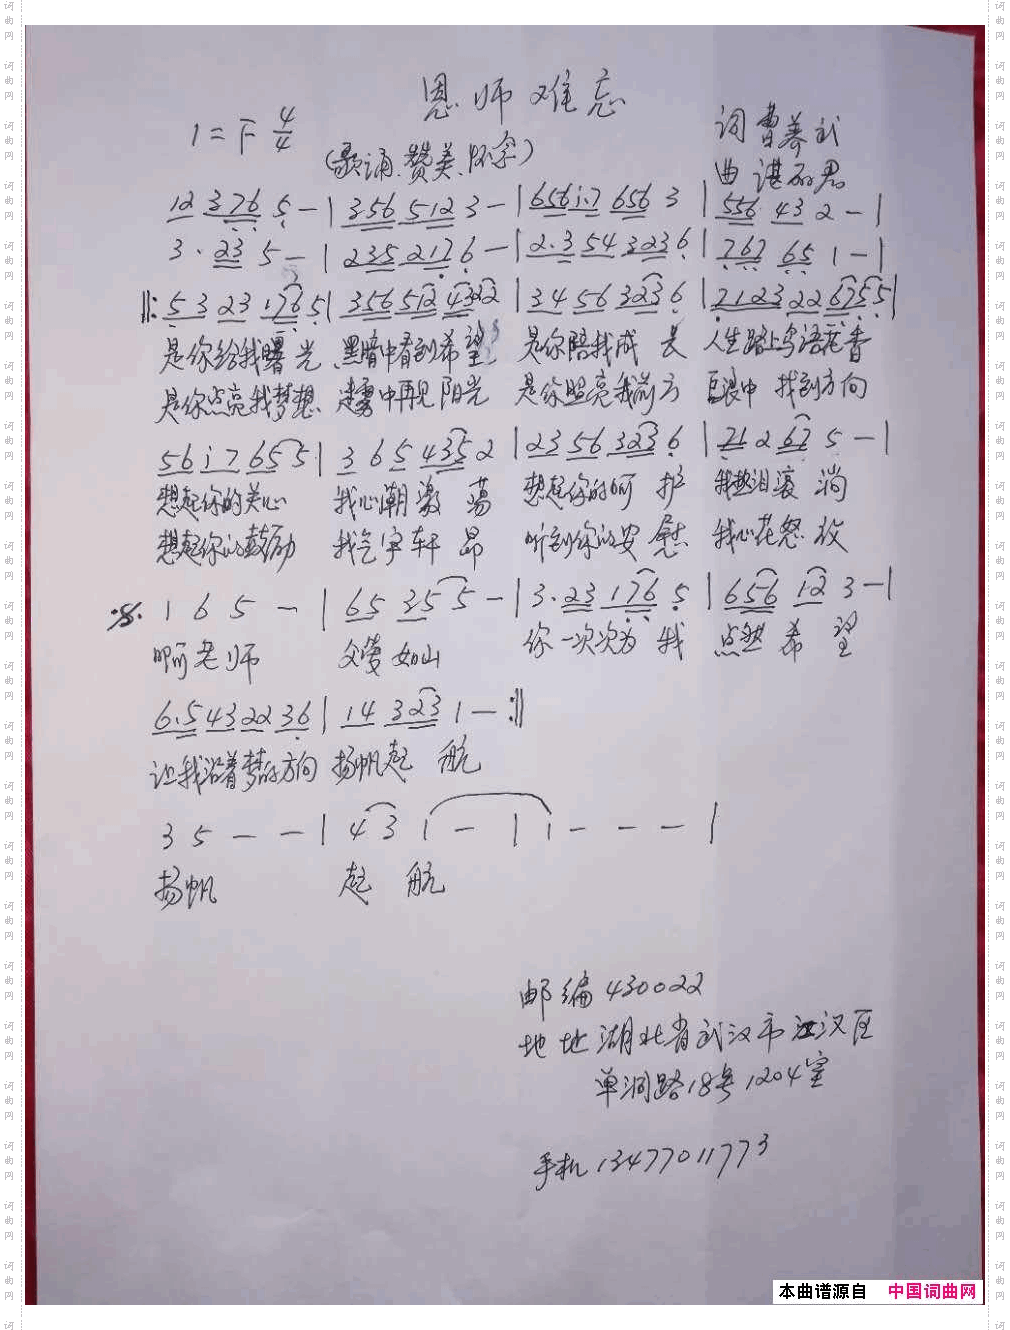 恩师难忘
1=F 4/4
(歌诵、赞美、怀念)
词 曹养武
曲 谌丽君
12 376 5 - | 356 512 3 - | 656 i·7 656 3 | 556 43 2 - |
3· 23 5 - | 235 217 6 - | 2·3 54 323 6 | 767 65 1 - |
‖: 53 23 176 5 | 356 512 43 22 | 34 56 323 6 | 2123 22 675 5 |
是你给我曙光 黑暗中看到希望 是你陪我成长 人生路上鸟语花香
是你点亮我梦想 迷雾中再见阳光 是你照亮我前方 巨浪中 找到方向
56 i7 65 5 | 3 65 435 2 | 23 56 323 6 | 21 2 67 5 - |
想起你的关心 我心潮激荡 想起你的呵护 我热泪滚淌
想起你的鼓励 我气宇轩昂 听到你的安慰 我心花怒放
1 6 5 - | 65 35 5 - | 3· 23 176 5 | 656 12 3 - |
啊老师 父爱如山 你一次次为我 点燃希望
6·5 43 22 36 | 14 323 1 - :‖
让我沿着梦的方向 扬帆起航
3 5 - - | 4 3 1 - | 1 - - - |
扬帆 起航
邮编 430022
地址 湖北省武汉市江汉区
单洞路18号1204室
手机 13477011773
本曲谱源自 中国词曲网